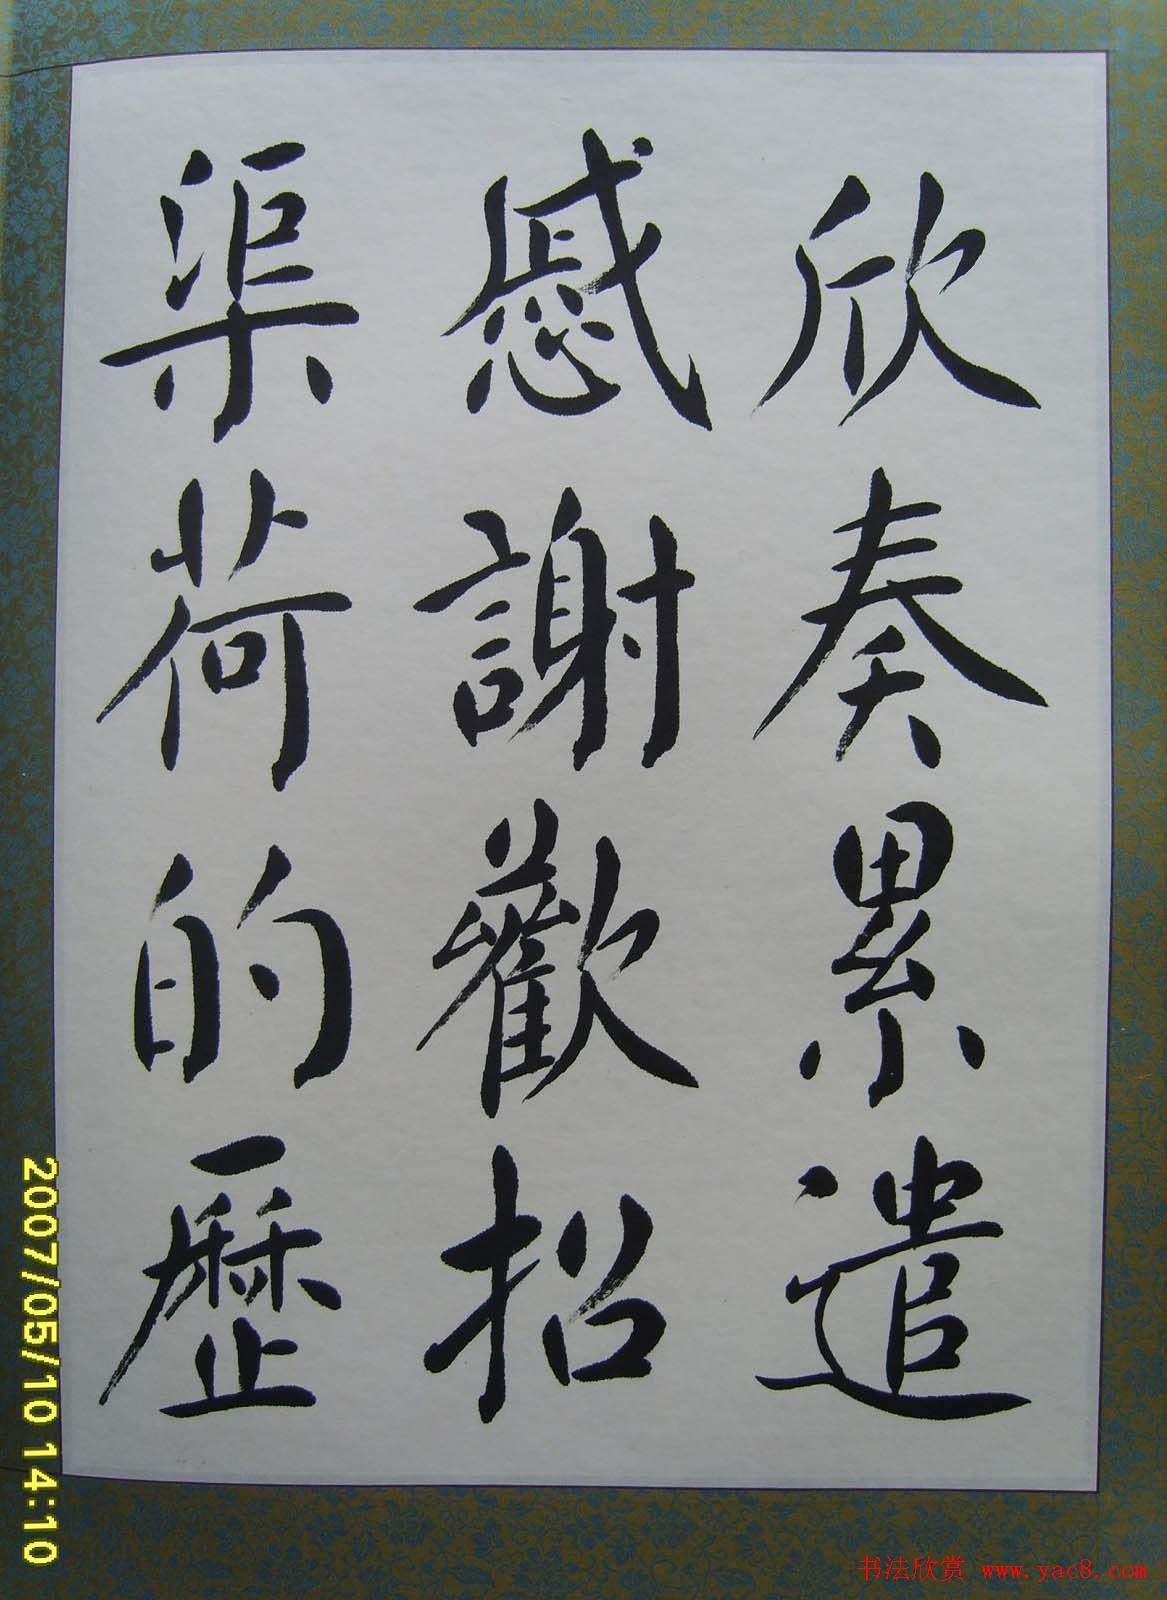 欣奏累遣
慼謝歡招
渠荷的歷
2007/05/10 14:10
书法欣赏 www.yac8.com